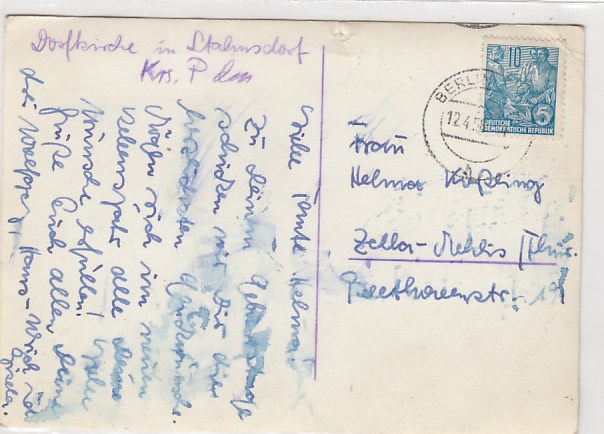 Dorfkirche in Stahnsdorf
Krs. P
Liebe Tante Helma!
Zu Deinem Geburtstage
schicken wir Dir die
herzlichsten Glückwünsche.
Mögen sich im neuen
Lebensjahr alle Deine
Wünsche erfüllen! Viele
Grüße Euch allen Deine
Hans-Ulrich u.
Gisela.
10
DEUTSCHE
DEMOKRATISCHE REPUBLIK
BERLIN
12.4.5
Frau
Helma
Zella-Mehlis /Thür.
Beethovenstr. 19